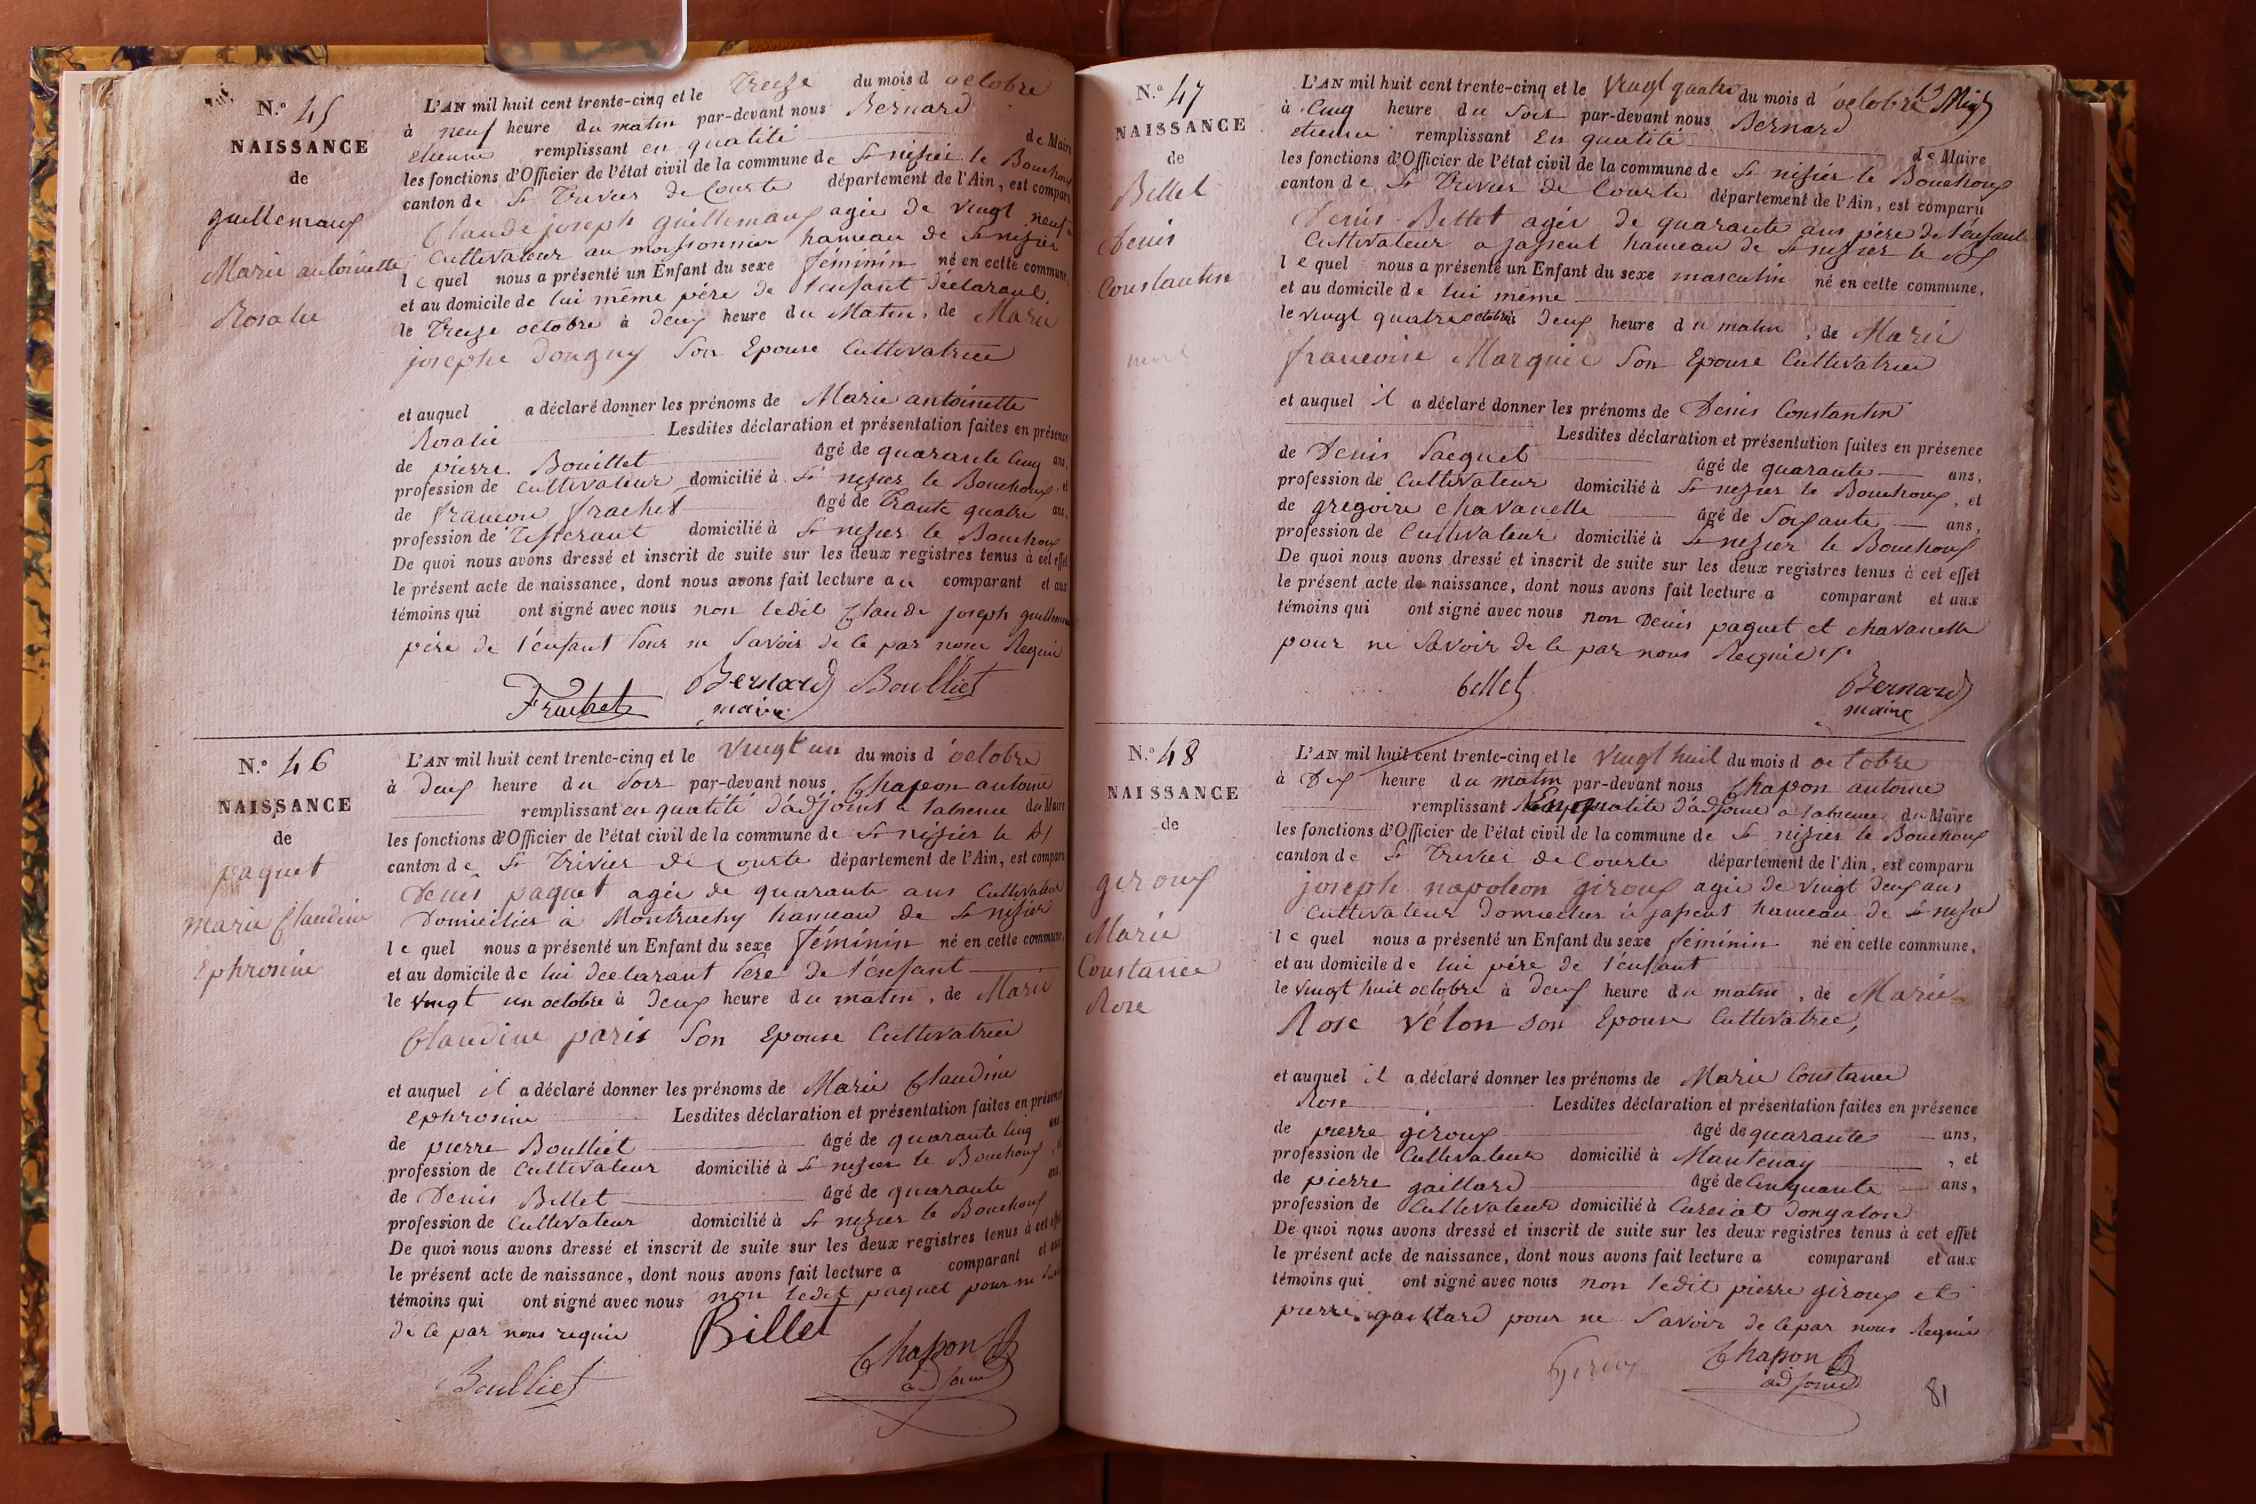 N.º 45
NAISSANCE
de
guillemaux
Marie antoinette
Rosalie
L'AN mil huit cent trente-cinq et le Treize du mois d'octobre
à neuf heure du matin par-devant nous Bernard
etienne remplissant en qualité de Maire
les fonctions d'Officier de l'état civil de la commune de St nisier le Bouchoux
canton de St Trivier de Courte département de l'Ain, est comparu
Claude joseph guillemaux agée de vingt neuf
Cultivateur au moissonnier hameau de St nisier
lequel nous a présenté un Enfant du sexe féminin né en cette commune,
et au domicile de lui même père de l'enfant déclarant
le Treize octobre à deux heure du Matin, de Marie
josephe Donguy Son Epouse Cultivatrice
et auquel a déclaré donner les prénoms de Marie antoinette
Rosalie Lesdites déclaration et présentation faites en présence
de pierre Bouillet âgé de quarante Cinq ans,
profession de Cultivateur domicilié à St nisier le Bouchoux, et
de françois frachet âgé de Trante quatre ans,
profession de Tisserant domicilié à St nisier le Bouchoux
De quoi nous avons dressé et inscrit de suite sur les deux registres tenus à cet effet
le présent acte de naissance, dont nous avons fait lecture au comparant et aux
témoins qui ont signé avec nous non ledit Claude joseph guillemaux
père de l'enfant pour ne Savoir de ce par nous Requis
Frachet Bernard maire Boulliet
N.º 46
NAISSANCE
de
paquet
marie Claudine
Ephrosine
L'AN mil huit cent trente-cinq et le vingt un du mois d'octobre
à deux heure du Soir par-devant nous Chapon antoine
remplissant en qualité d'adjoint a l'absence du Maire
les fonctions d'Officier de l'état civil de la commune de St nisier le Bx
canton de St Trivier de Courte département de l'Ain, est comparu
Denis paquet agée de quarante ans Cultivateur
Domicilier à Montrachy hameau de St nisier
lequel nous a présenté un Enfant du sexe féminin né en cette commune,
et au domicile de lui declarant Père de l'enfant
le vingt un octobre à deux heure du matin, de Marie
Claudine paris Son Epouse Cultivatrice
et auquel il a déclaré donner les prénoms de Marie Claudine
ephrosine Lesdites déclaration et présentation faites en présence
de pierre Boulliet âgé de quarante Cinq ans
profession de Cultivateur domicilié à St nisier le Bouchoux, et
de Denis Billet âgé de quarante ans,
profession de Cultivateur domicilié à St nisier le Bouchoux
De quoi nous avons dressé et inscrit de suite sur les deux registres tenus à cet effet
le présent acte de naissance, dont nous avons fait lecture a comparant et aux
témoins qui ont signé avec nous non ledit paquet pour ne
de ce par nous requis
Billet
Boulliet Chapon
adjoint
N.º 47
NAISSANCE
de
Billet
Denis
Constantin
L'AN mil huit cent trente-cinq et le Vingt quatre du mois d'octobre
à Cinq heure du Soir par-devant nous Bernard
etienne remplissant En qualité de Maire
les fonctions d'Officier de l'état civil de la commune de St nisier le Bouchoux
canton de St Trivier de Courte département de l'Ain, est comparu
Denis Billet agée de quarante ans père de l'enfant
Cultivateur a japient hameau de St nisier le Bx
lequel nous a présenté un Enfant du sexe masculin né en cette commune,
et au domicile de lui même
le vingt quatre octobre à Deux heure du matin, de Marie
francoise Marquie Son Epouse Cultivatrice
et auquel il a déclaré donner les prénoms de Denis Constantin
Lesdites déclaration et présentation faites en présence
de Denis Pacquet âgé de quarante ans,
profession de Cultivateur domicilié à St nisier le Bouchoux, et
de gregoire chavanelle âgé de Soixante ans,
profession de Cultivateur domicilié à St nisier le Bouchoux
De quoi nous avons dressé et inscrit de suite sur les deux registres tenus à cet effet
le présent acte de naissance, dont nous avons fait lecture a comparant et aux
témoins qui ont signé avec nous non Denis paquet et chavanelle
pour ne Savoir de ce par nous Requis
billet Bernard
maire
N.º 48
NAISSANCE
de
giroux
Marie
Constance
Rose
L'AN mil huit cent trente-cinq et le vingt huit du mois d'octobre
à Dix heure du matin par-devant nous Chapon antoine
remplissant En qualité d'adjoint a l'absence du Maire
les fonctions d'Officier de l'état civil de la commune de St nisier le Bouchoux
canton de St Trivier de Courte département de l'Ain, est comparu
joseph napoleon giroux agée de vingt deux ans
Cultivateur Domicilier à japient hameau de St nisier
lequel nous a présenté un Enfant du sexe féminin né en cette commune,
et au domicile de lui père de l'enfant
le vingt huit octobre à deux heure du matin, de Marie
Rose Vélon son Epouse Cultivatrice,
et auquel il a déclaré donner les prénoms de Marie Constance
Rose Lesdites déclaration et présentation faites en présence
de pierre giroux âgé de quarante ans,
profession de Cultivateur domicilié à Mantenay, et
de pierre gaillard âgé de Cinquante ans,
profession de Cultivateur domicilié à Curciat Dongalon
De quoi nous avons dressé et inscrit de suite sur les deux registres tenus à cet effet
le présent acte de naissance, dont nous avons fait lecture a comparant et aux
témoins qui ont signé avec nous non ledit pierre giroux et
pierre gaillard pour ne Savoir de ce par nous Requis
Giroux Chapon
adjoint
81